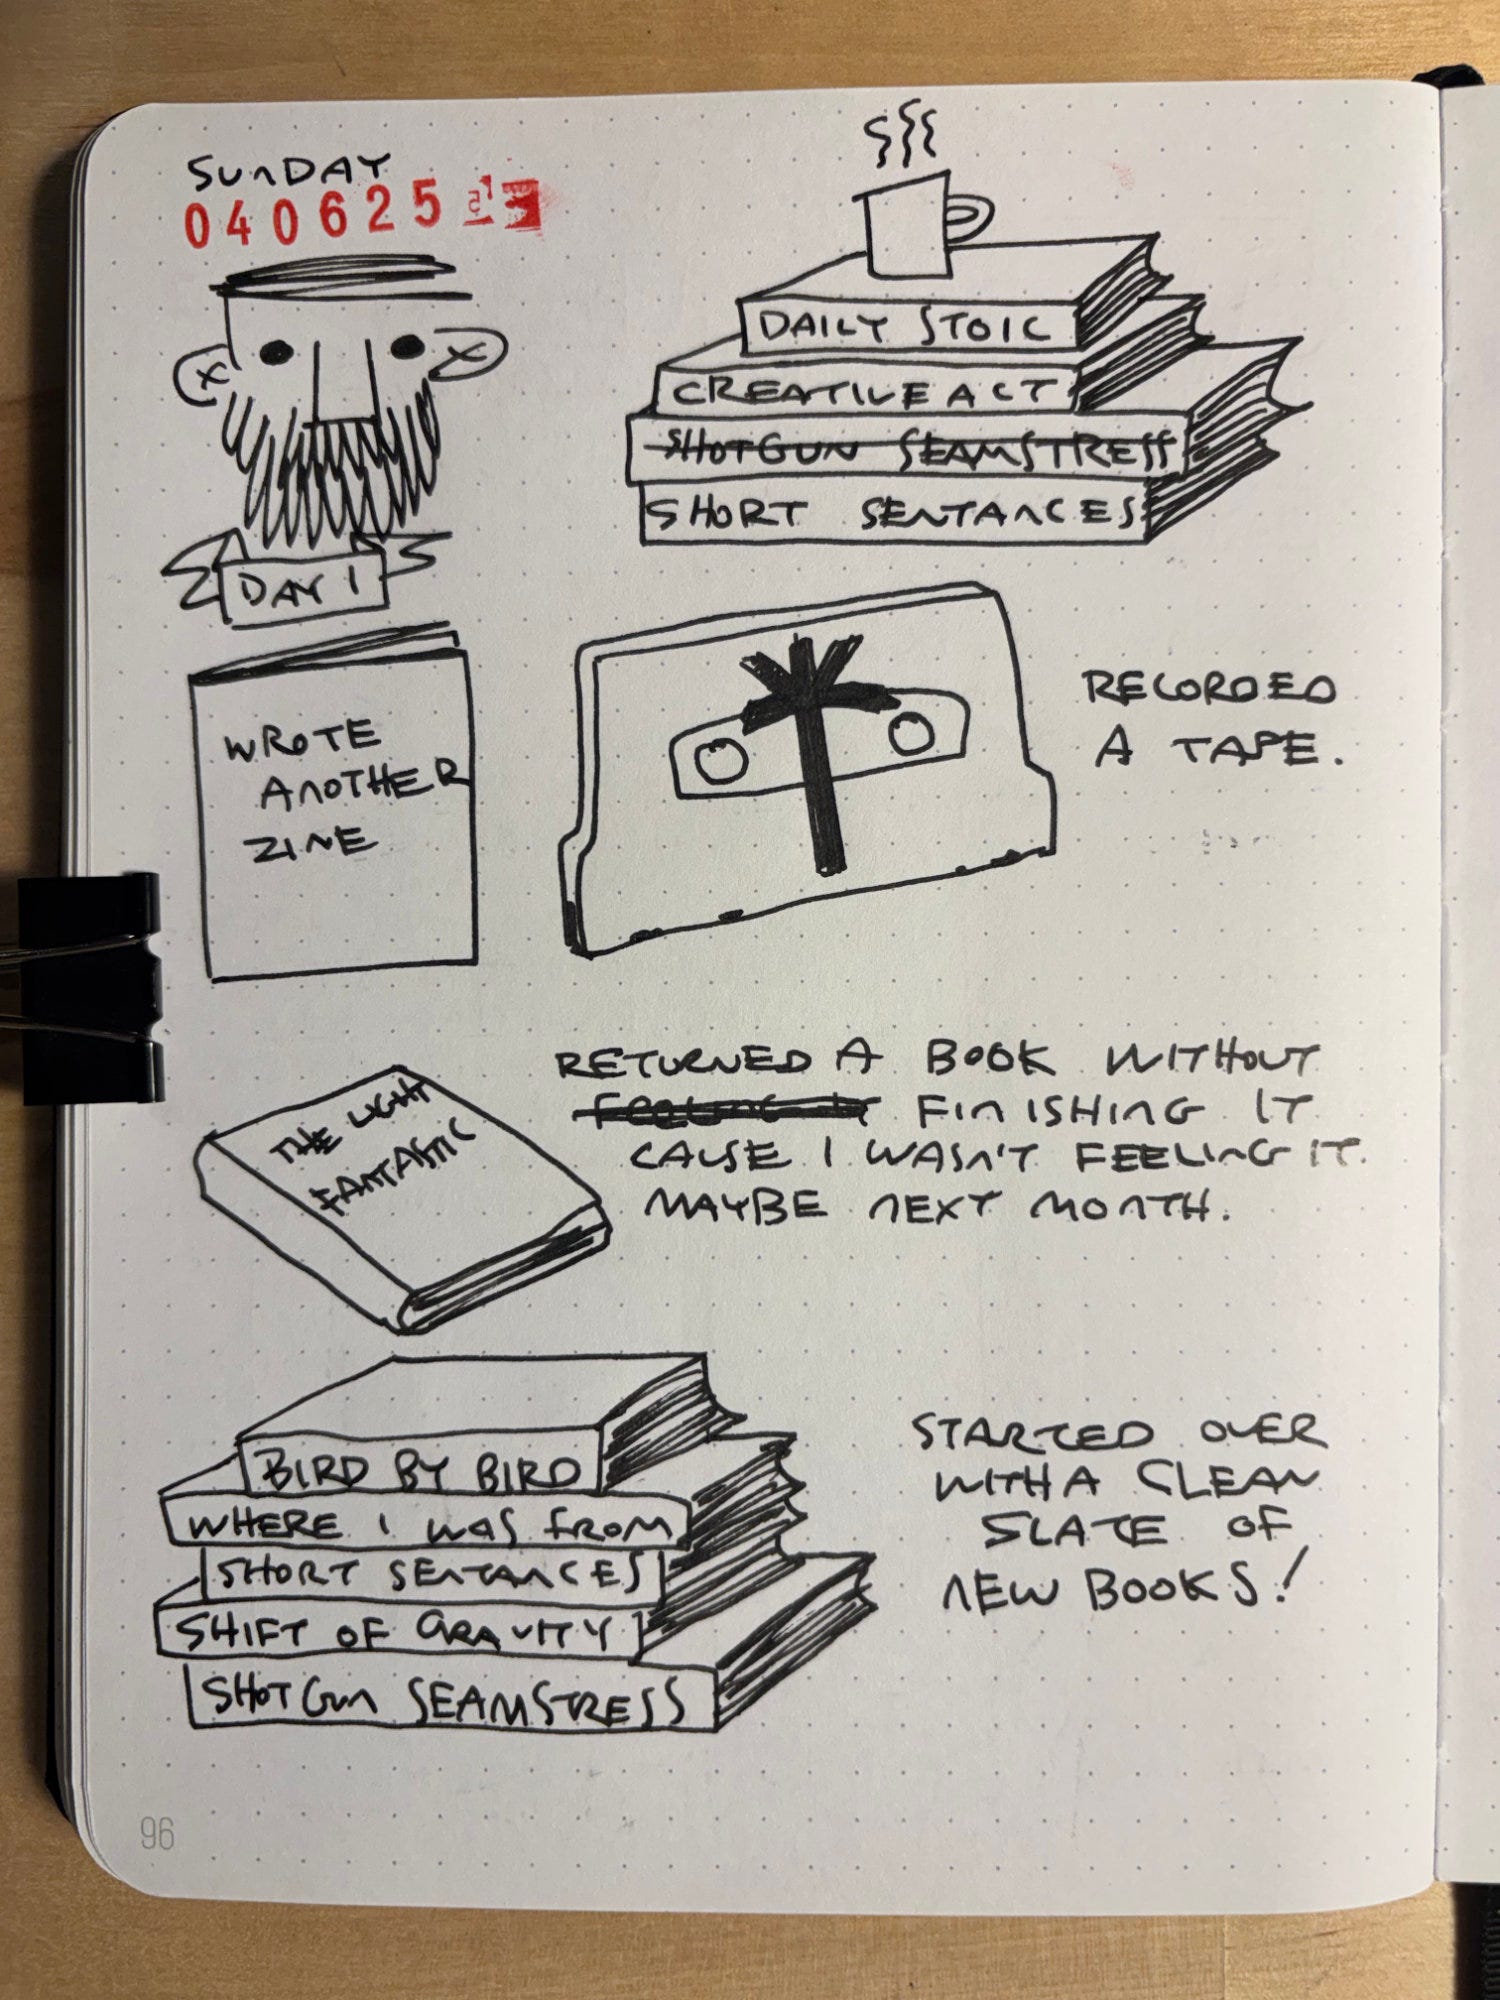 SUNDAY
040625
DAILY STOIC
CREATIVE ACT
SHOTGUN SEAMSTRESS
SHORT SENTANCES
DAY 1
WROTE
ANOTHER
ZINE
RECORDED
A TAPE.
THE LIGHT
FANTASTIC
RETURNED A BOOK WITHOUT
FINISHING IT
CAUSE I WASN'T FEELING IT.
MAYBE NEXT MONTH.
BIRD BY BIRD
WHERE I WAS FROM
SHORT SENTANCES
SHIFT OF GRAVITY
SHOTGUN SEAMSTRESS
STARTED OVER
WITH A CLEAN
SLATE OF
NEW BOOKS!
96